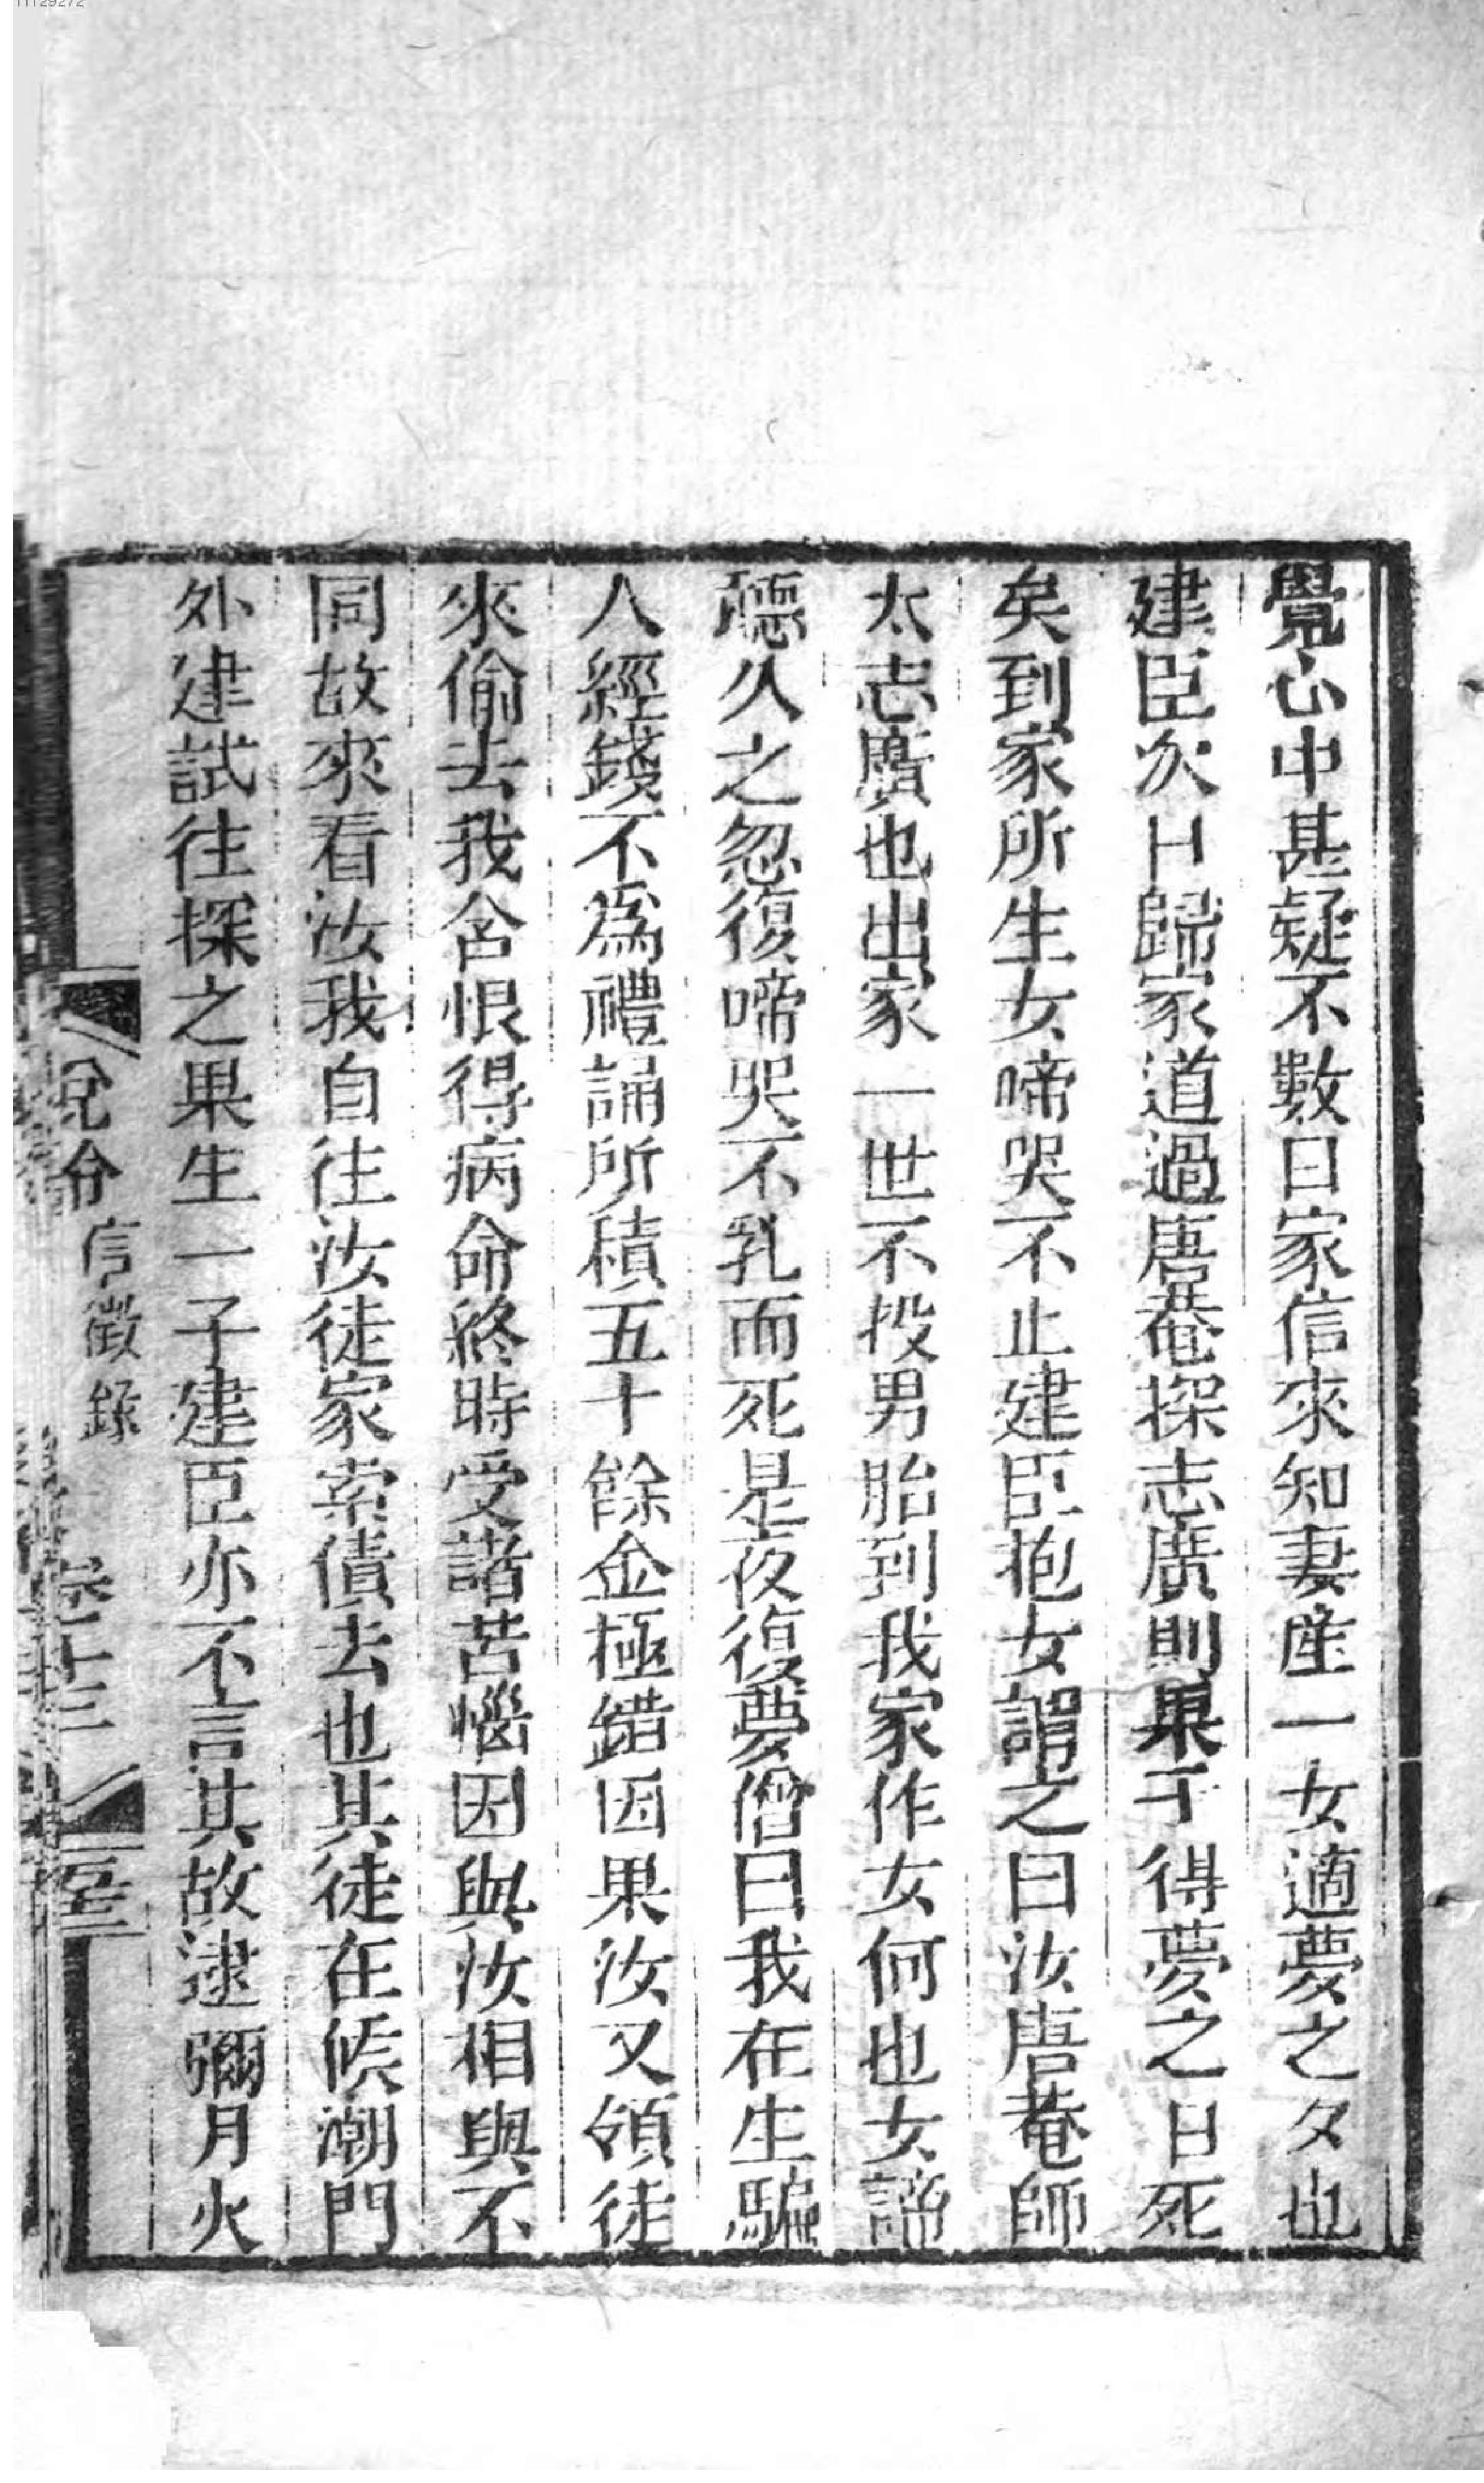 覺心中甚疑不數日家信來知妻產一女適夢之夕也
建臣次日歸家道過唐菴探志廣則果于得夢之日死
矣到家所生女啼哭不止建臣抱女謂之曰汝唐菴師
太志廣也出家一世不投男胎到我家作女何也女諦
聽久之忽復啼哭不乳而死是夜復夢僧曰我在生騙
人經錢不爲禮誦所積五十餘金極錯因果汝又領徒
來偷去我含恨得病命終時受諸苦惱因與汝相與不
同故來看汝我自往汝徒家索債去也其徒在候潮門
外建試往探之果生一子建臣亦不言其故逮彌月火
信徵錄
卷十三